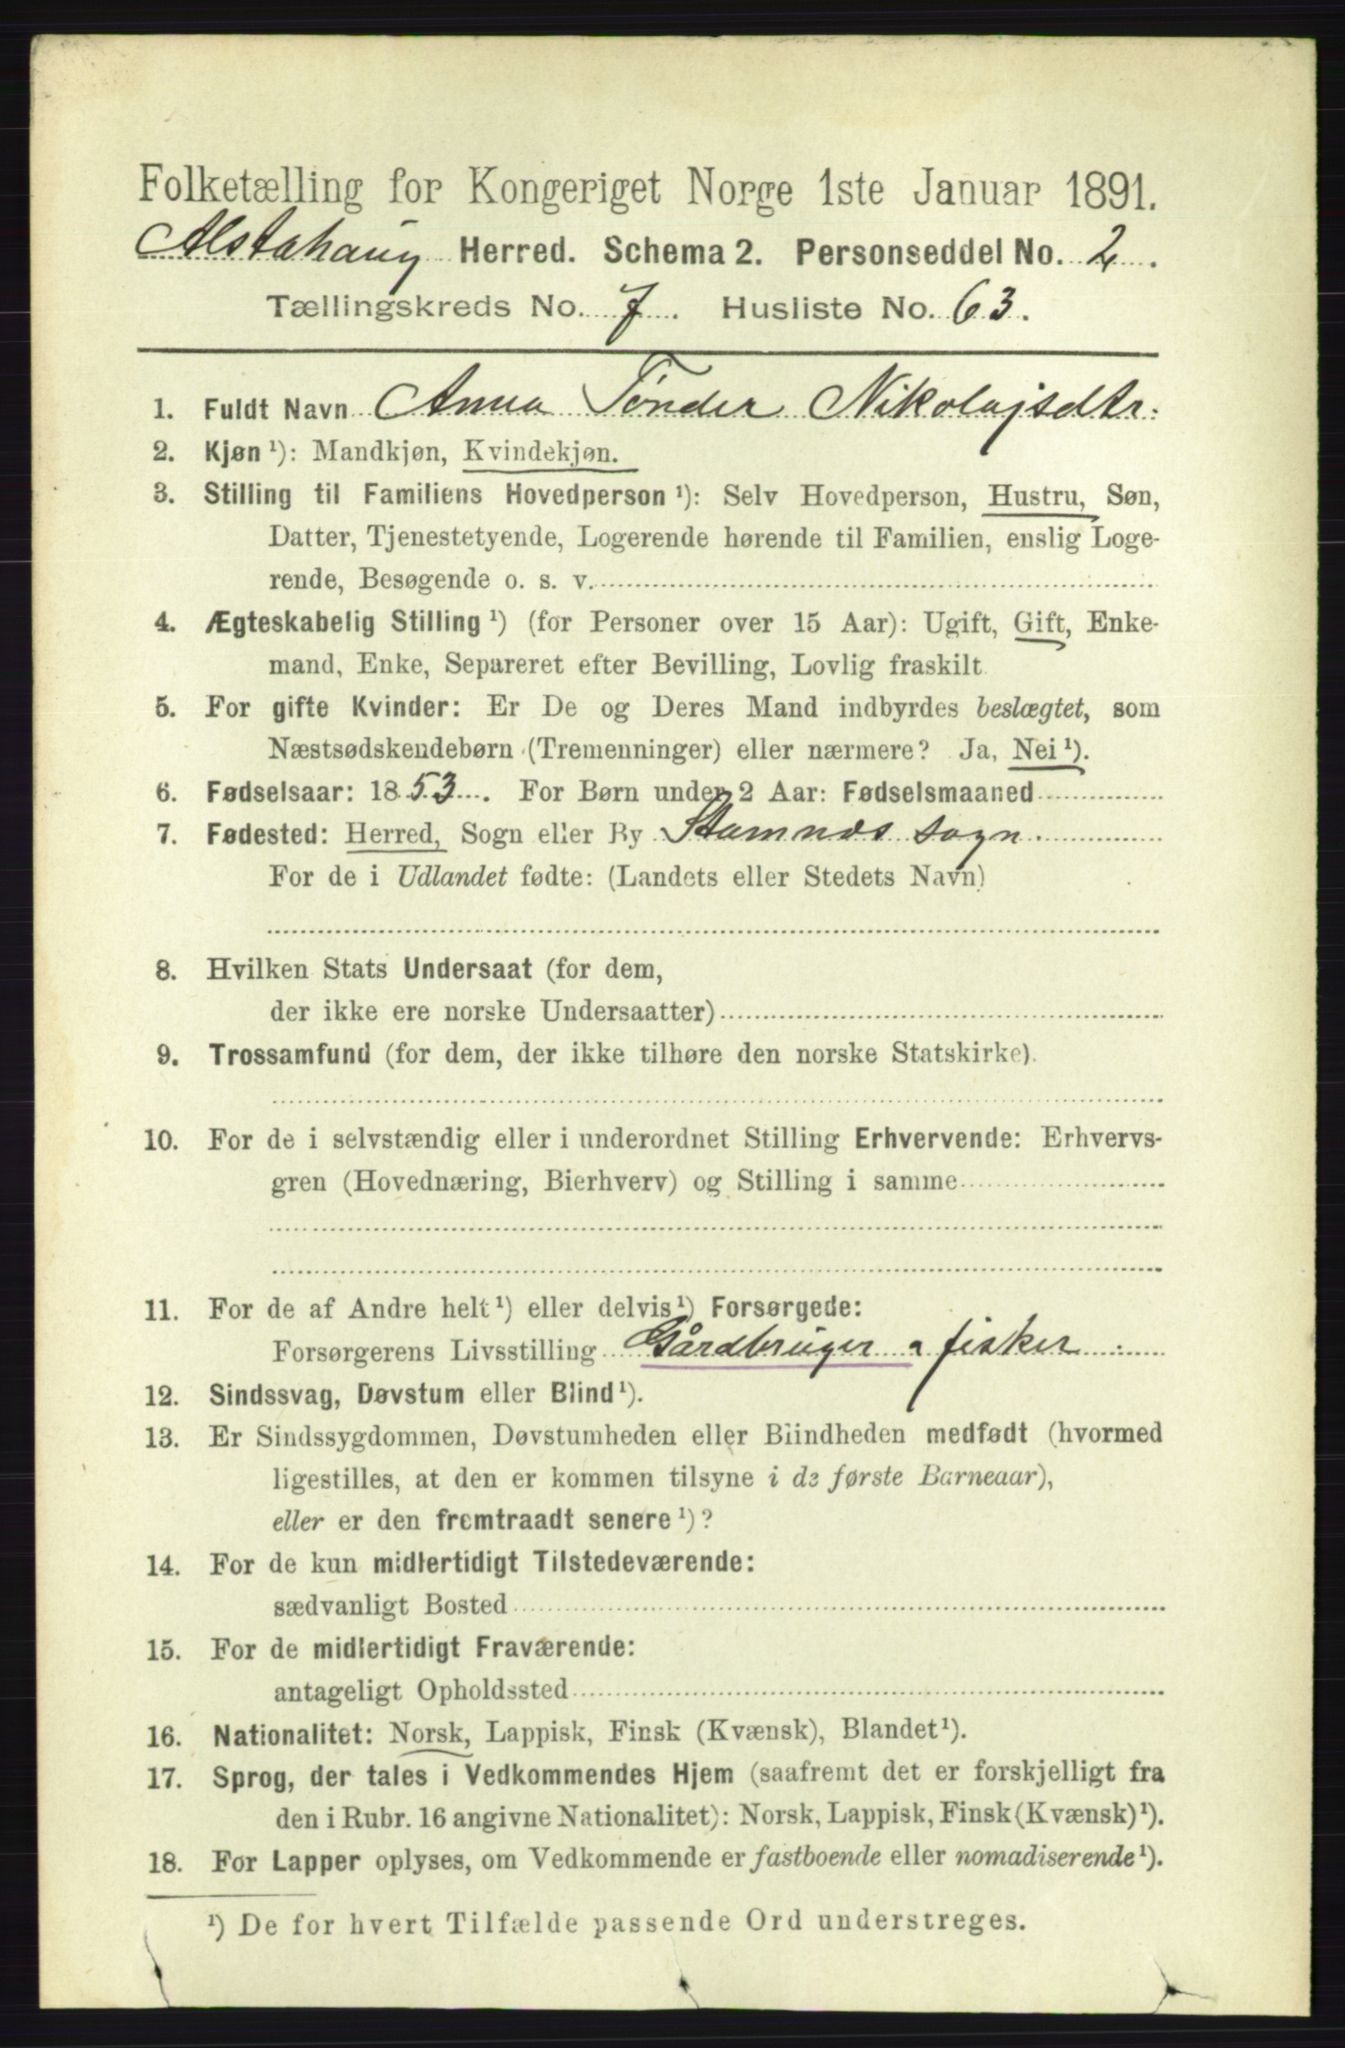 Folketælling for Kongeriget Norge 1ste Januar 1891.
Alstahaug Herred. Schema 2. Personseddel No. 2.
Tællingskreds No. 7. Husliste No. 63.
1. Fuldt Navn Anna Tønder Nikolajsdtr.
2. Kjøn ¹): Mandkjøn, Kvindekjøn.
3. Stilling til Familiens Hovedperson ¹): Selv Hovedperson, Hustru, Søn,
Datter, Tjenestetyende, Logerende hørende til Familien, enslig Loge-
rende, Besøgende o. s. v.
4. Ægteskabelig Stilling ¹) (for Personer over 15 Aar): Ugift, Gift, Enke-
mand, Enke, Separeret efter Bevilling, Lovlig fraskilt
5. For gifte Kvinder: Er De og Deres Mand indbyrdes beslægtet, som
Næstsødskendebørn (Tremenninger) eller nærmere? Ja, Nei ¹).
6. Fødselsaar: 1853. For Børn under 2 Aar: Fødselsmaaned
7. Fødested: Herred, Sogn eller By Stamnæs sogn.
For de i Udlandet fødte: (Landets eller Stedets Navn)
8. Hvilken Stats Undersaat (for dem,
der ikke ere norske Undersaatter)
9. Trossamfund (for dem, der ikke tilhøre den norske Statskirke).
10. For de i selvstændig eller i underordnet Stilling Erhvervende: Erhvervs-
gren (Hovednæring, Bierhverv) og Stilling i samme
11. For de af Andre helt ¹) eller delvis ¹) Forsørgede:
Forsørgerens Livsstilling Gårdbruger a fisker.
12. Sindssvag, Døvstum eller Blind ¹).
13. Er Sindssygdommen, Døvstumheden eller Blindheden medfødt (hvormed
ligestilles, at den er kommen tilsyne i de første Barneaar),
eller er den fremtraadt senere ¹)?
14. For de kun midlertidigt Tilstedeværende:
sædvanligt Bosted
15. For de midlertidigt Fraværende:
antageligt Opholdssted
16. Nationalitet: Norsk, Lappisk, Finsk (Kvænsk), Blandet ¹).
17. Sprog, der tales i Vedkommendes Hjem (saafremt det er forskjelligt fra
den i Rubr. 16 angivne Nationalitet): Norsk, Lappisk, Finsk (Kvænsk) ¹).
18. For Lapper oplyses, om Vedkommende er fastboende eller nomadiserende ¹).
¹) De for hvert Tilfælde passende Ord understreges.